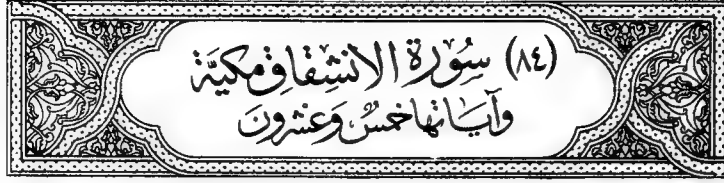 (٨٤) سُورَة الانشِقَاق مكيَّة
وآياتها خمسٌ وَعشرُونَ